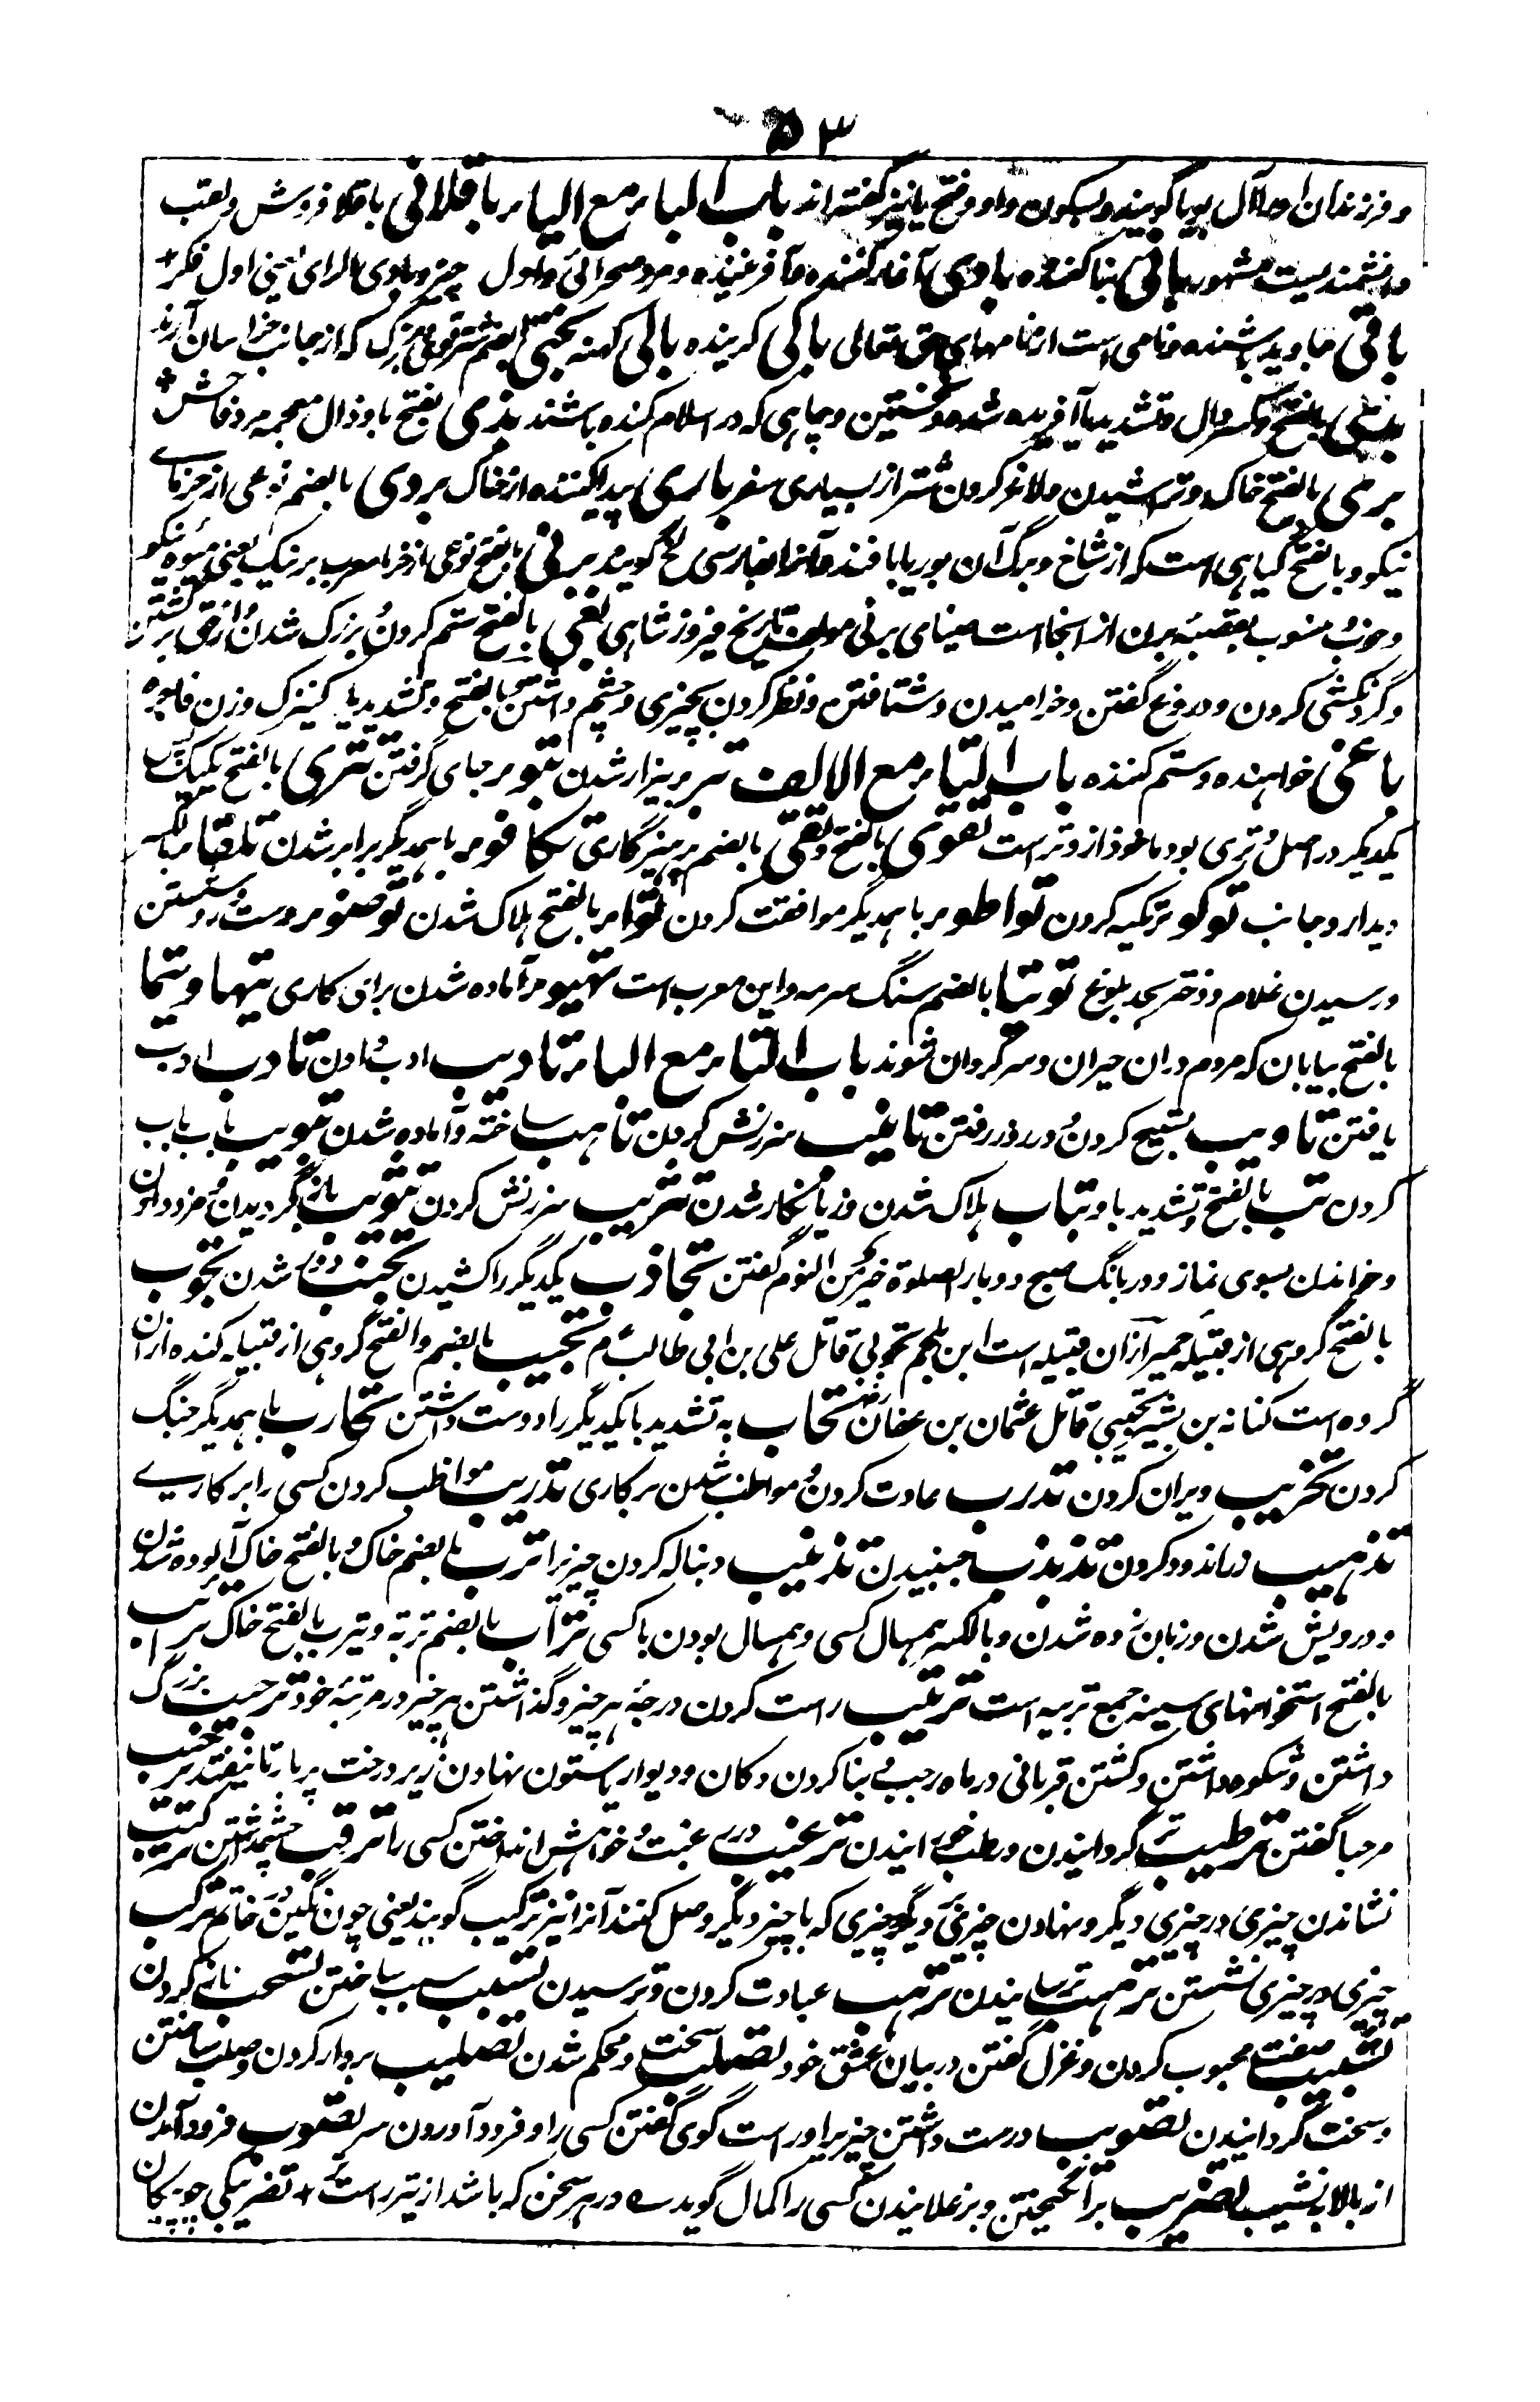 ۵۳
و فرزندان او را آل بویا گویند و بسکون واو و فتح یا نیز گفته‌اند باب الباء مع الیاء باقلانی باقلا فروش و لقب
دانشمندیست مشهور بانی بنا کننده بادی آغاز کننده و آفریننده و مرد صحرائی و اول چیز و بادی الرای یعنی اول فکر
باقی جاوید باشنده و نامی است از نامهای حق تعالی باکی گرینده بالی کهنه بختی بالضم شتر قوی بزرگ که از جانب خراسان آرند
بدئی بالفتح و کسر دال و تشدید یا آفریده شده و نخستین و چاهی که در اسلام کنده باشند بذی بفتح با و ذال معجمه مرد فاحش
بری بالفتح خاک و تراشیدن و لاغر کردن شتر از بسیاری سفر باری پیدا کننده از خاک بردی بالضم نوعی از خرمای
نیکو و بالفتح گیاهی است که از شاخ و برگ آن بوریا بافند و آنرا بفارسی لخ گویند برنی بالفتح نوعی از خرما معرب برنیک یعنی میوه نیکو
و حوض منسوب بقصبه برن از اینجا است ضیای برنی مولف تاریخ فیروز شاهی بغی بالفتح ستم کردن و بزرگ شدن و از حق برگشتن
و گردنکشی کردن و دروغ گفتن و خرامیدن و شتافتن و نظر کردن بچیزی و چشم داشتن و بالفتح و تشدید یا کنیزک و زن فاجره
باغی خواهنده و ستم کننده باب التاء مع الالف تبرء بیزار شدن تبوء جای گرفتن تتری بالفتح یکیک پس
یکدیگر در اصل وتری بود ماخوذ از وتر است تقوی بالفتح و تقی بالضم پرهیزگاری تکافوء باهمدیگر برابر شدن تلقاء بالکسر
دیدار و جانب توکوء تکیه کردن تواطوء باهمدیگر موافقت کردن تواء بالفتح هلاک شدن توضوء دست و رو شستن
و رسیدن غلام و دختر بحد بلوغ توتیا بالضم سنگ سرمه و این معرب است تهیوء آماده شدن برای کاری تیهاء و تیما
بالفتح بیابان که مردم دران حیران و سرگردان شوند باب التاء مع الباء تادیب ادب دادن تادب ادب
یافتن تاویب تسبیح کردن و در روز رفتن تانیب سرزنش کردن تاهب ساخته و آماده شدن تبویب باب باب
کردن تب بالفتح و تشدید با و تباب هلاک شدن و زیانکار شدن تثریب سرزنش کردن تثویب بازگردیدن و مزد دادن
و خواندن بسوی نماز و در بانگ صبح دو بار الصلوة خیر من النوم گفتن تجاذب یکدیگر را کشیدن تجنب دور شدن تجوب
بالفتح گروهی از قبیله حمیر ازان قبیله است ابن ملجم تجوبی قاتل علی بن ابی طالب تجیب بالضم و الفتح گروهی از قبیله کنده ازان
گروه است کنانه بن بشیر تجیبی قاتل عثمان بن عفان تحاب به تشدید با یکدیگر را دوست داشتن تحارب باهمدیگر جنگ
کردن تخریب ویران کردن تدرب عادت کردن و مواظب شدن بر کاری تدریب مواظب کردن کسی را بر کاری
تذهیب زراندود کردن تذبذب جنبیدن تذنیب دنباله کردن چیزیرا ترب بالضم خاک و بالفتح خاک آلوده شدن
و درویش شدن و زیان زده شدن و بالکسر همسال کسی و همسال بودن با کسی تراب بالضم تربة و تیرب بالفتح خاک ترائب
بالفتح استخوانهای سینه جمع تریبه است ترتیب راست کردن درجه هر چیز و گذاشتن هر چیز در مرتبه خود ترجیب بزرگ
داشتن و شکوه داشتن و کشتن قربانی در ماه رجب و بنا کردن دکان و دیوار یا ستون نهادن زیر درخت پربار تا نیفتد ترحیب
مرحبا گفتن ترطیب تر گردانیدن و رطب خورانیدن ترغیب در رغبت و خواهش انداختن کسی را ترقب چشم داشتن ترکیب
نشاندن چیزی در چیزی دیگر و نهادن چیزی بر دیگر و چیزی که با چیز دیگر وصل کنند آنرا نیز ترکیب گویند یعنی چون نگین در خاتم ترکب
چیزی در چیزی نشستن ترهیب ترسانیدن ترهب عبادت کردن و ترسیدن تسبیب سبب ساختن تسحب ناز کردن
تشبیب صفت محبوب کردن و غزل گفتن در بیان عشق خود تصلب سخت و محکم شدن تصلیب بردار کردن و صلیب ساختن
و سخت گردانیدن تصویب درست داشتن چیزیرا و راست گوی گفتن کسی را و فرود آوردن سر تصوب فرود آمدن
از بالا بنشیب تضریب برانگیختن و برغلانیدن کسی را کمال گوید در هر سخن که باشد از تیر راست‌تر + تضریبکی چو پیکان